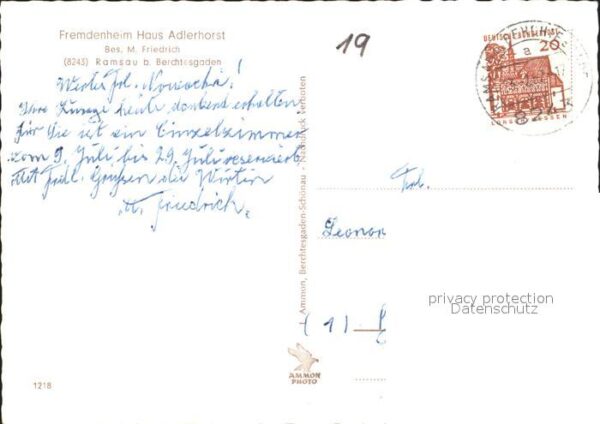 Fremdenheim Haus Adlerhorst
Bes. M. Friedrich
(8243) Ramsau b. Berchtesgaden
Werte Frl. Nowacha!
Ihre Zusage heute dankend erhalten
für Sie ist ein Einzelzimmer
vom 9. Juli bis 29. Juli reserviert
Mit frdl. Grüßen die Wirtin
M. Friedrich.
1218
Ammon, Berchtesgaden-Schönau - Nachdruck verboten
AMMON
PHOTO
19
DEUTSCHE BUNDESPOST
20
LORSCH HESSEN
a
Frl.
Leonor
(1)
privacy protection
Datenschutz